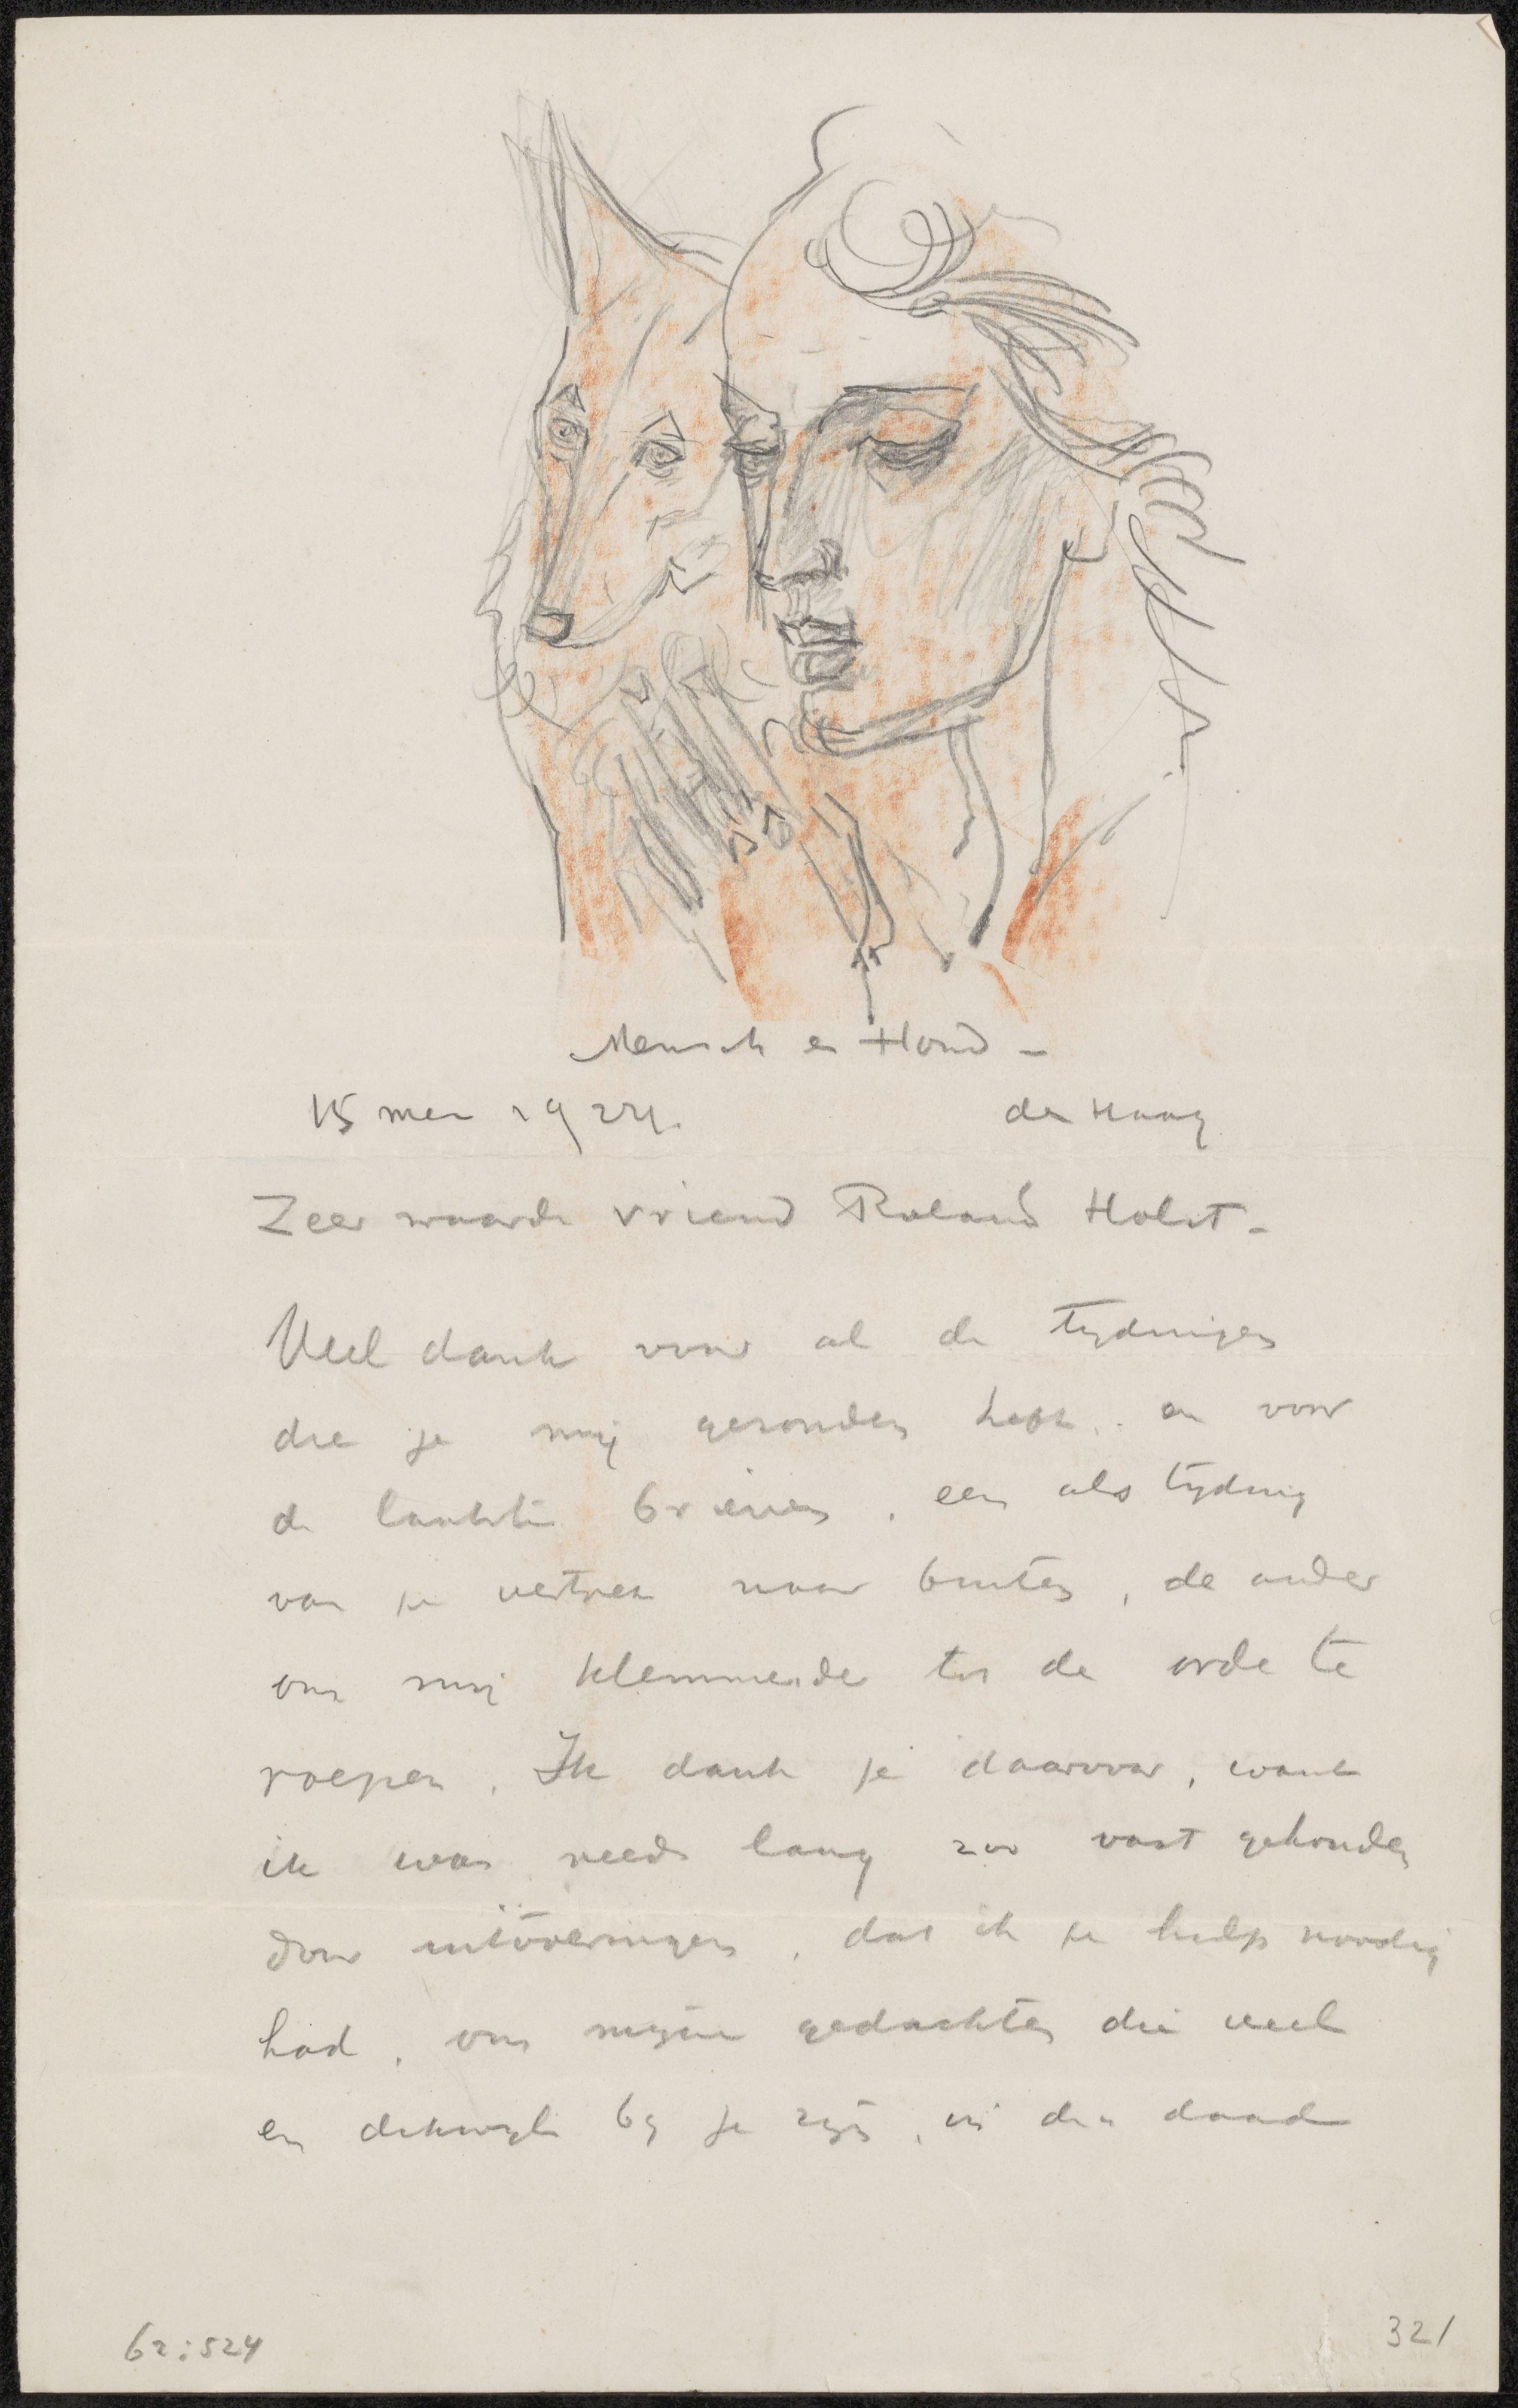 Mensch en Hond –
15 mei 1924. den Haag
Zeer waarde vriend Roland Holst –
Veel dank voor al de tydingen
die je my gezonden hebt. en voor
de laatste brieven, een als tyding
van je vertrek naar buiten, de ander
om mij klemmender tot de orde te
roepen. Ik dank je daarvoor, want
ik was reeds lang zoo vast gehouden
door uitvoeringen, dat ik je hulp noodig
had, om mijne gedachten die veel
en dikwyls by je zyn, in den daad
62:524 321